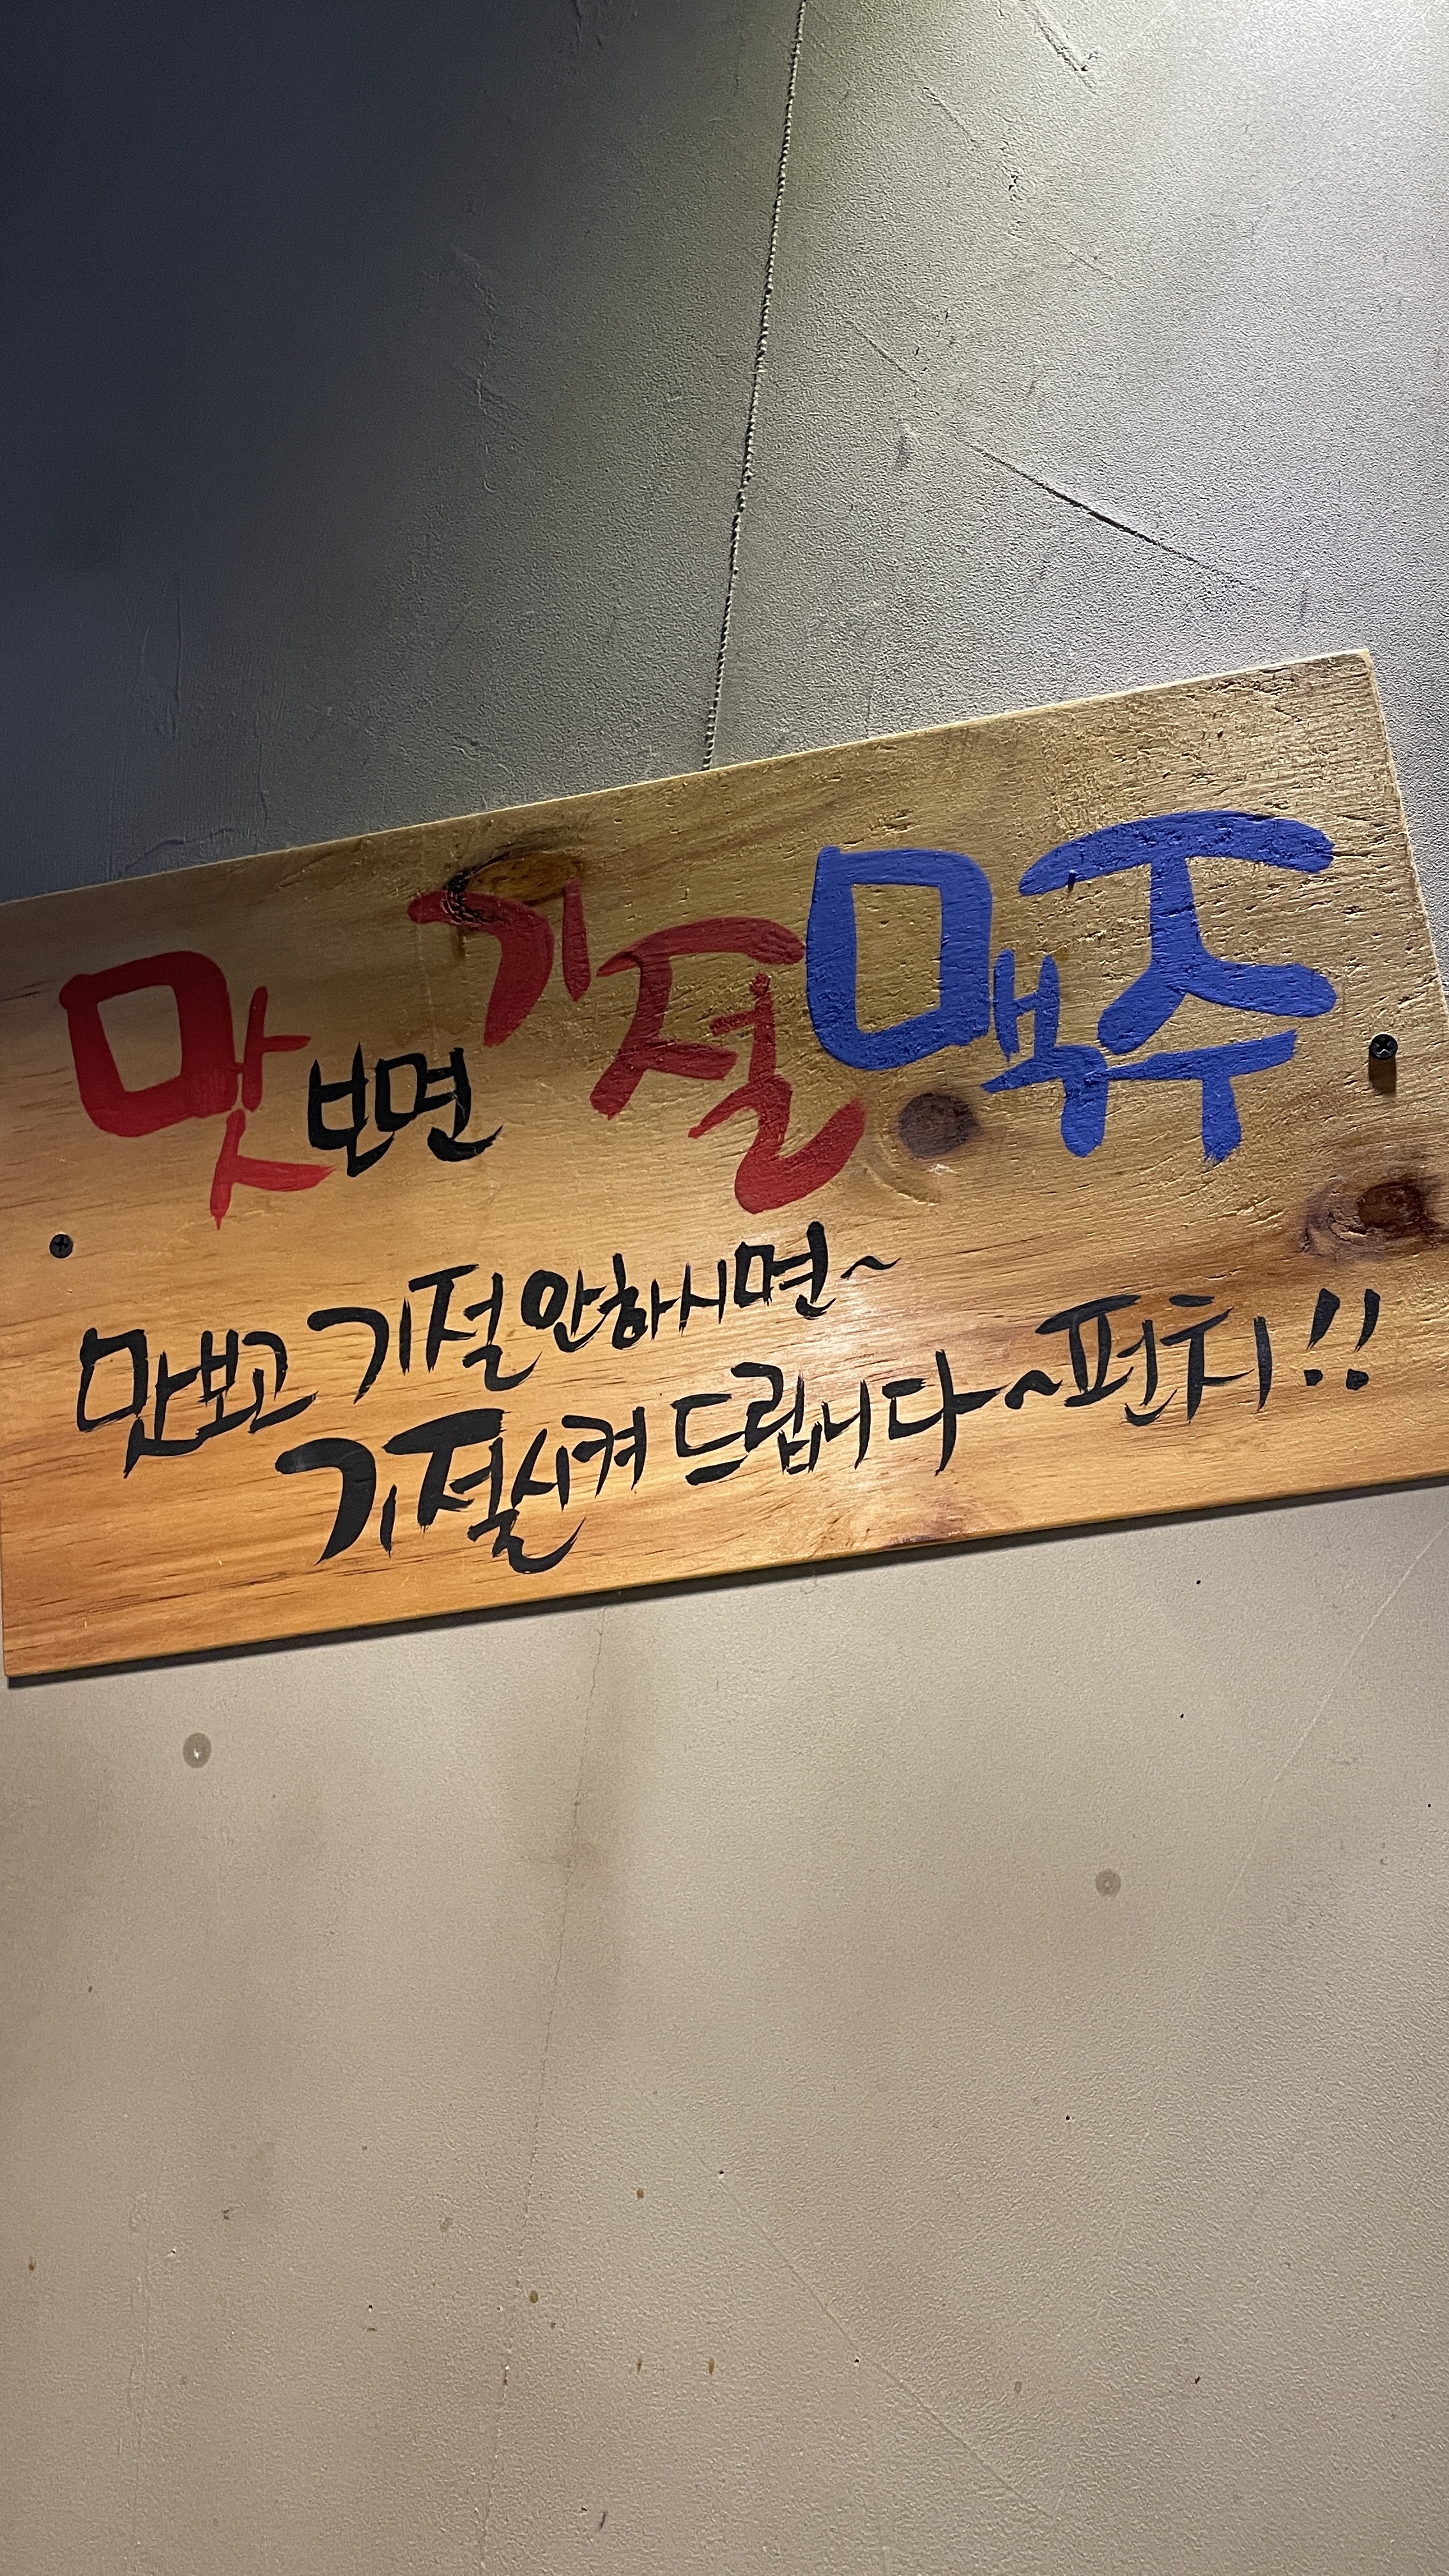 맛보면 기절 맥주
맛보고 기절 안하시면~
기절시켜 드립니다~펀치!!